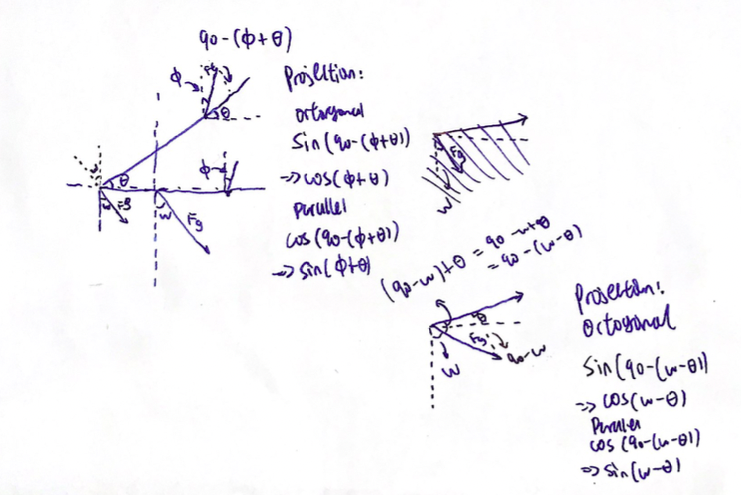 90-(ϕ+θ)
ϕ
θ
Projection:
ortogonal
Sin(90-(ϕ+θ))
=> cos(ϕ+θ)
parallel
cos(90-(ϕ+θ))
=> sin(ϕ+θ)
ϕ
θ
w
Fg
w
Fg
Fg
w
(90-w)+θ = 90-w+θ
= 90-(w-θ)
θ
Fg
90-w
w
Projection:
Ortogonal
Sin(90-(w-θ))
=> cos(w-θ)
Parallel
cos(90-(w-θ))
=> sin(w-θ)